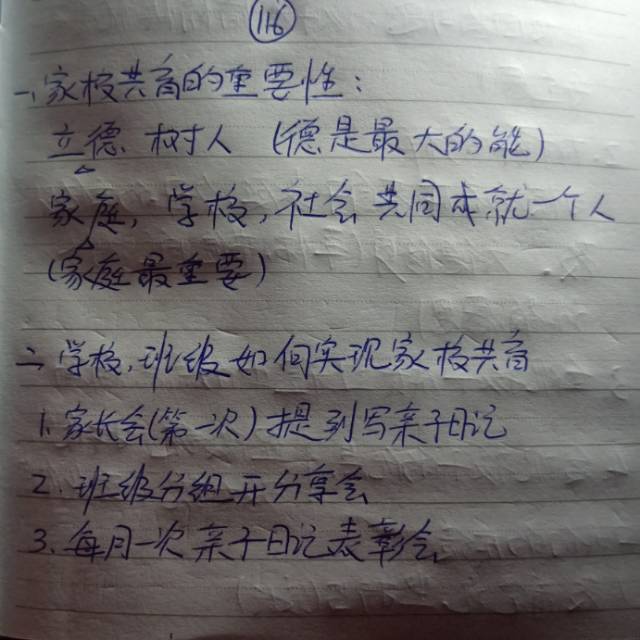 116
一、家校共育的重要性:
立德、树人 (德是最大的能)
家庭,学校,社会共同成就一个人
(家庭最重要)
二、学校,班级如何实现家校共育
1. 家长会(第一次)提到写亲子日记
2. 班级分组开分享会
3. 每月一次亲子日记表彰会。